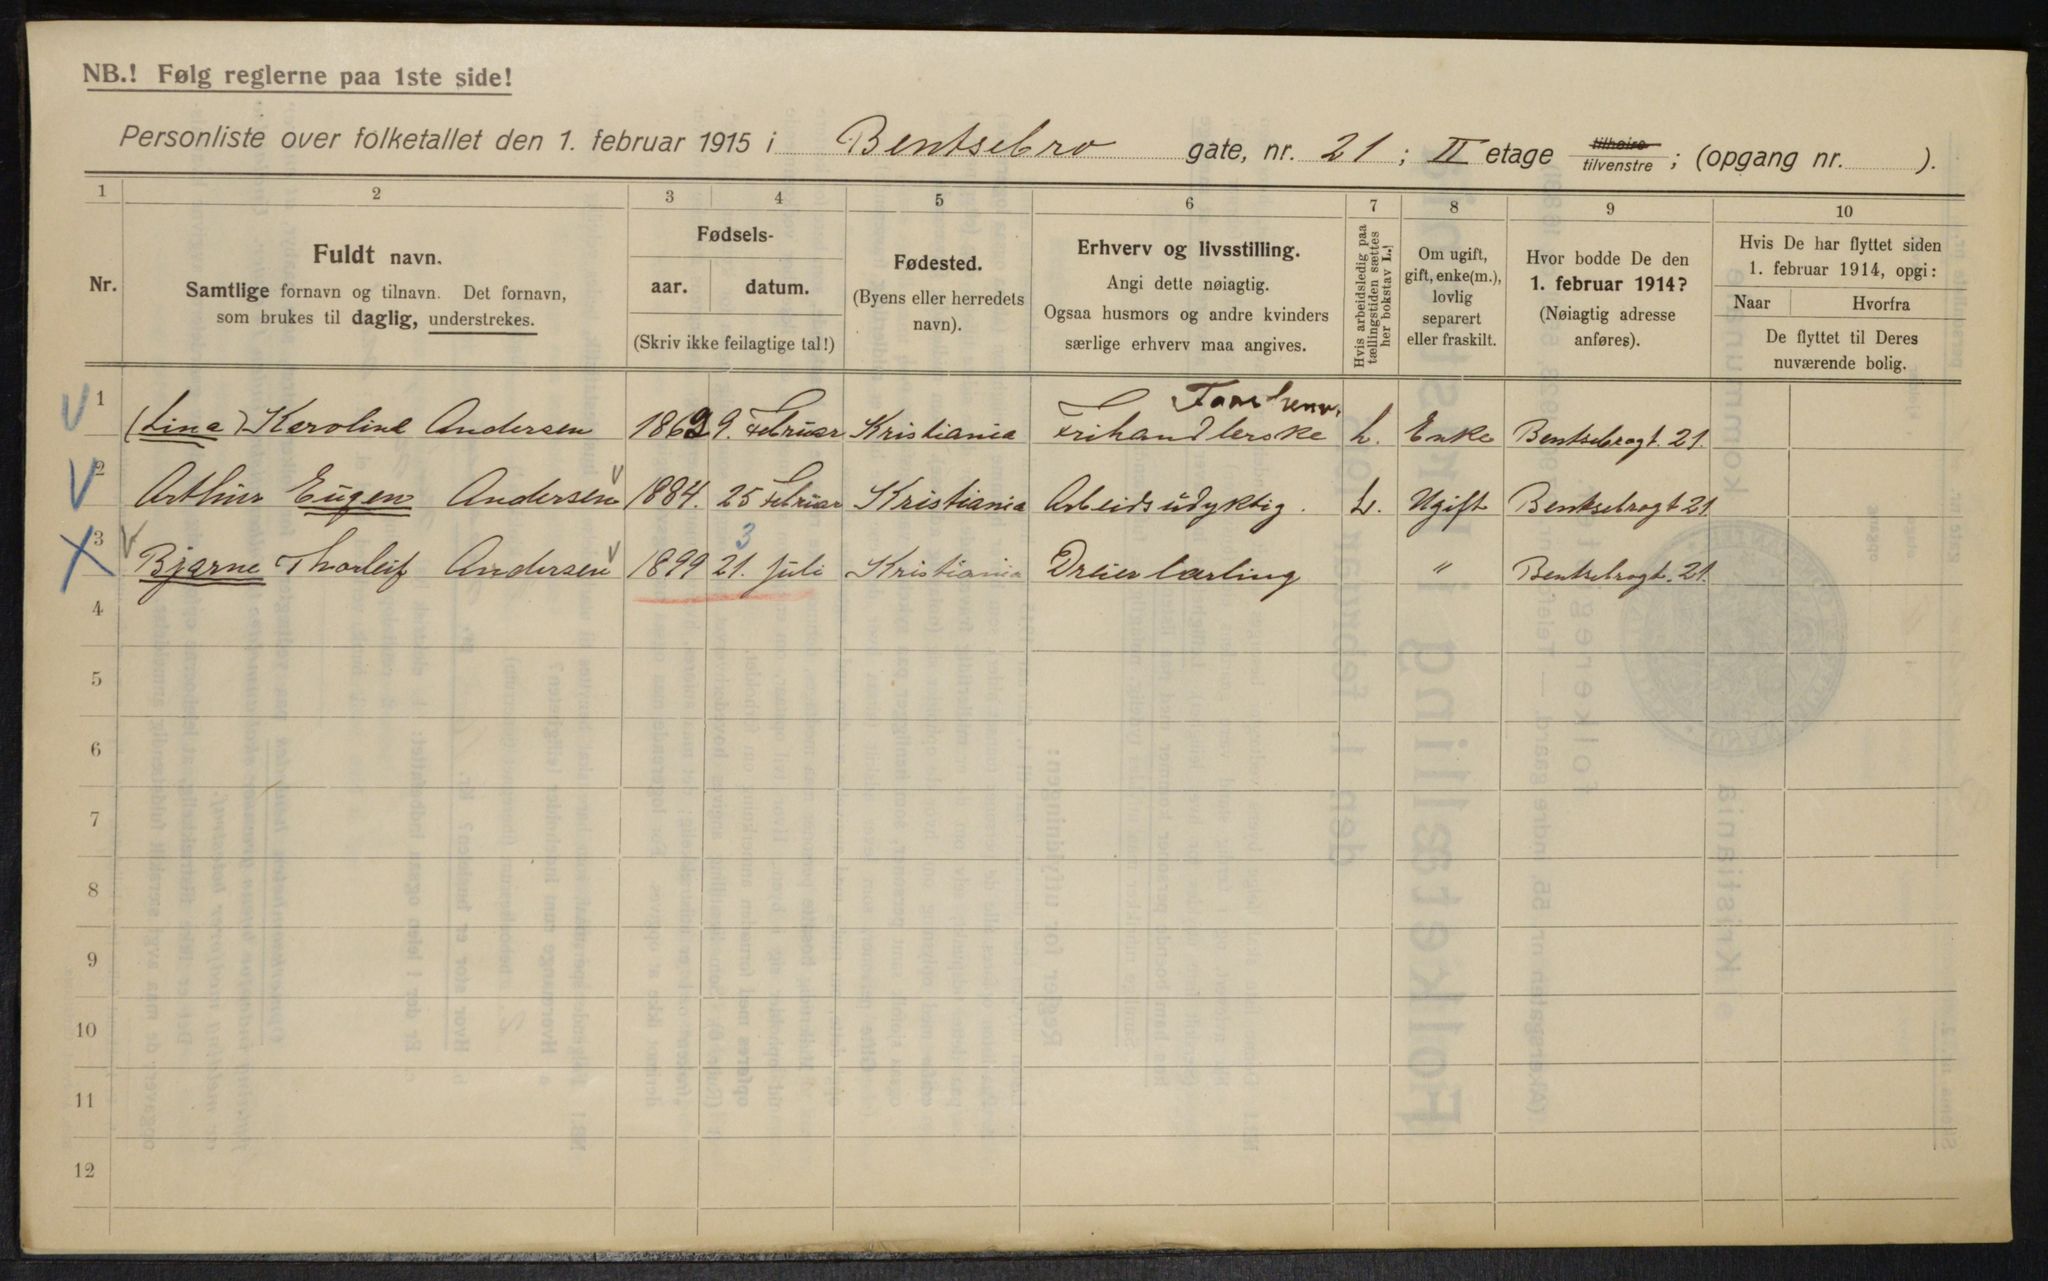 NB.! Følg reglerne paa 1ste side!
Personliste over folketallet den 1. februar 1915 i Bentsebro gate, nr. 21; II etage tilhøire tilvenstre; (opgang nr. ).
1 2 3 4 5 6 7 8 9 10
Nr.
Fuldt navn.
Samtlige fornavn og tilnavn. Det fornavn,
som brukes til daglig, understrekes.
Fødsels-
aar. datum.
(Skriv ikke feilagtige tal!)
Fødested.
(Byens eller herredets
navn).
Erhverv og livsstilling.
Angi dette nøiagtig.
Ogsaa husmors og andre kvinders
særlige erhverv maa angives.
Hvis arbeidsledig paa
tællingstiden sættes
her bokstav L.!
Om ugift,
gift, enke(m.),
lovlig
separert
eller fraskilt.
Hvor bodde De den
1. februar 1914?
(Nøiagtig adresse
anføres).
Hvis De har flyttet siden
1. februar 1914, opgi:
Naar Hvorfra
De flyttet til Deres
nuværende bolig.
1 (Lina) Karoline Andersen 1862 9. Februar Kristiania Frihandlerske L. Enke Bentsebrogt. 21.
2 Arthur Eugen Andersen 1884. 25 Februar Kristiania Arbeidsudyktig. L. Ugift Bentsebrogt 21
3
3 Bjarne Thorleif Andersen 1899 21. juli Kristiania Dreierlærling " Bentsebrogt. 21.
4
5
6
7
8
9
10
11
12